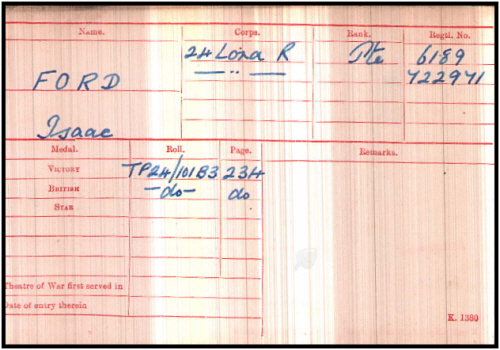 Name. Corps. Rank. Regtl. No.
24 Lond R Pte 6189
—— ·· —— 422941
FORD
Isaac
Medal. Roll. Page. Remarks.
VICTORY TP24/101B3 234
BRITISH -do- do
STAR
Theatre of War first served in
Date of entry therein
K. 1380